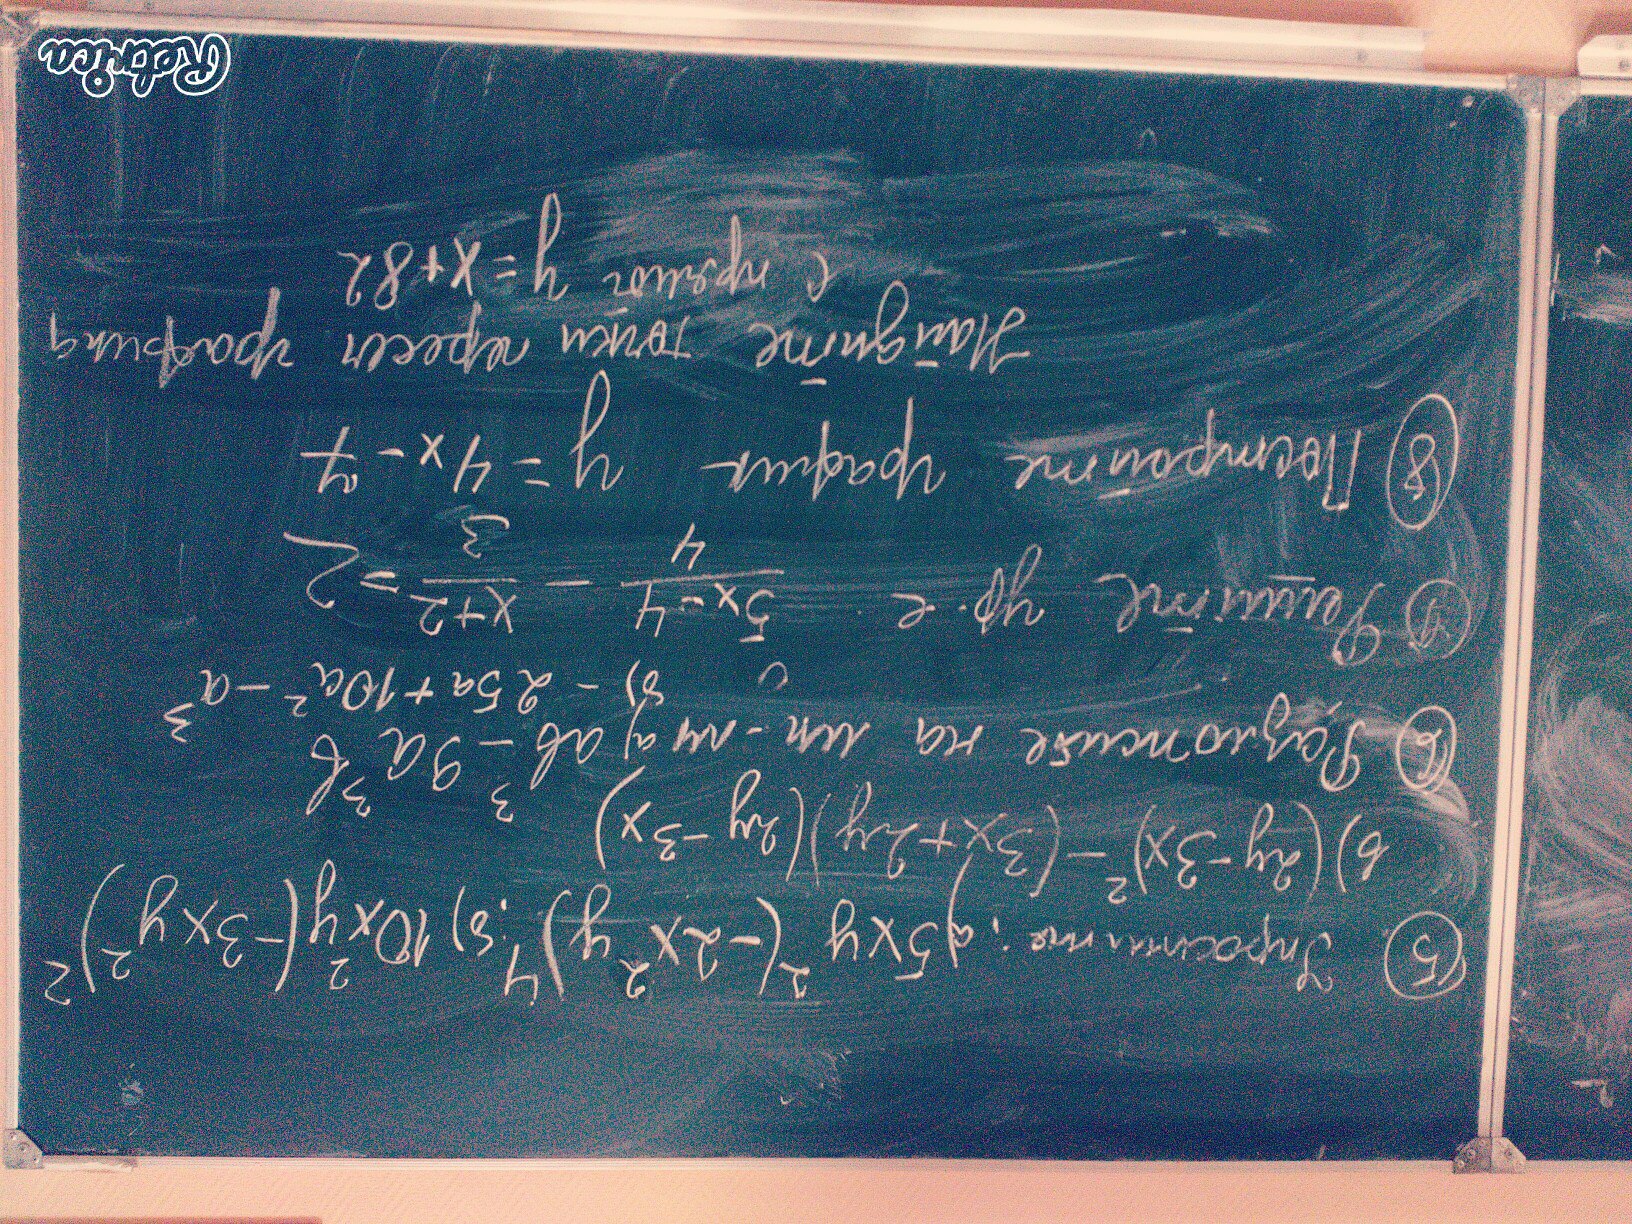 ⑤ Упростите: а) 5xy²(-2x²y)⁴; б) 10x²y(-3xy²)²
в) (2y-3x)²-(3x+2y)(2y-3x)
⑥ Разложите на мн-ли а) ab³-9a³b
б) -25a+10a²-a³
⑦ Решите ур-е (5x-4)/4 - (x+2)/3 = 2
⑧ Постройте график y=4x-7
Найдите точки пересеч графика
с прямой y=x+82
Retrica